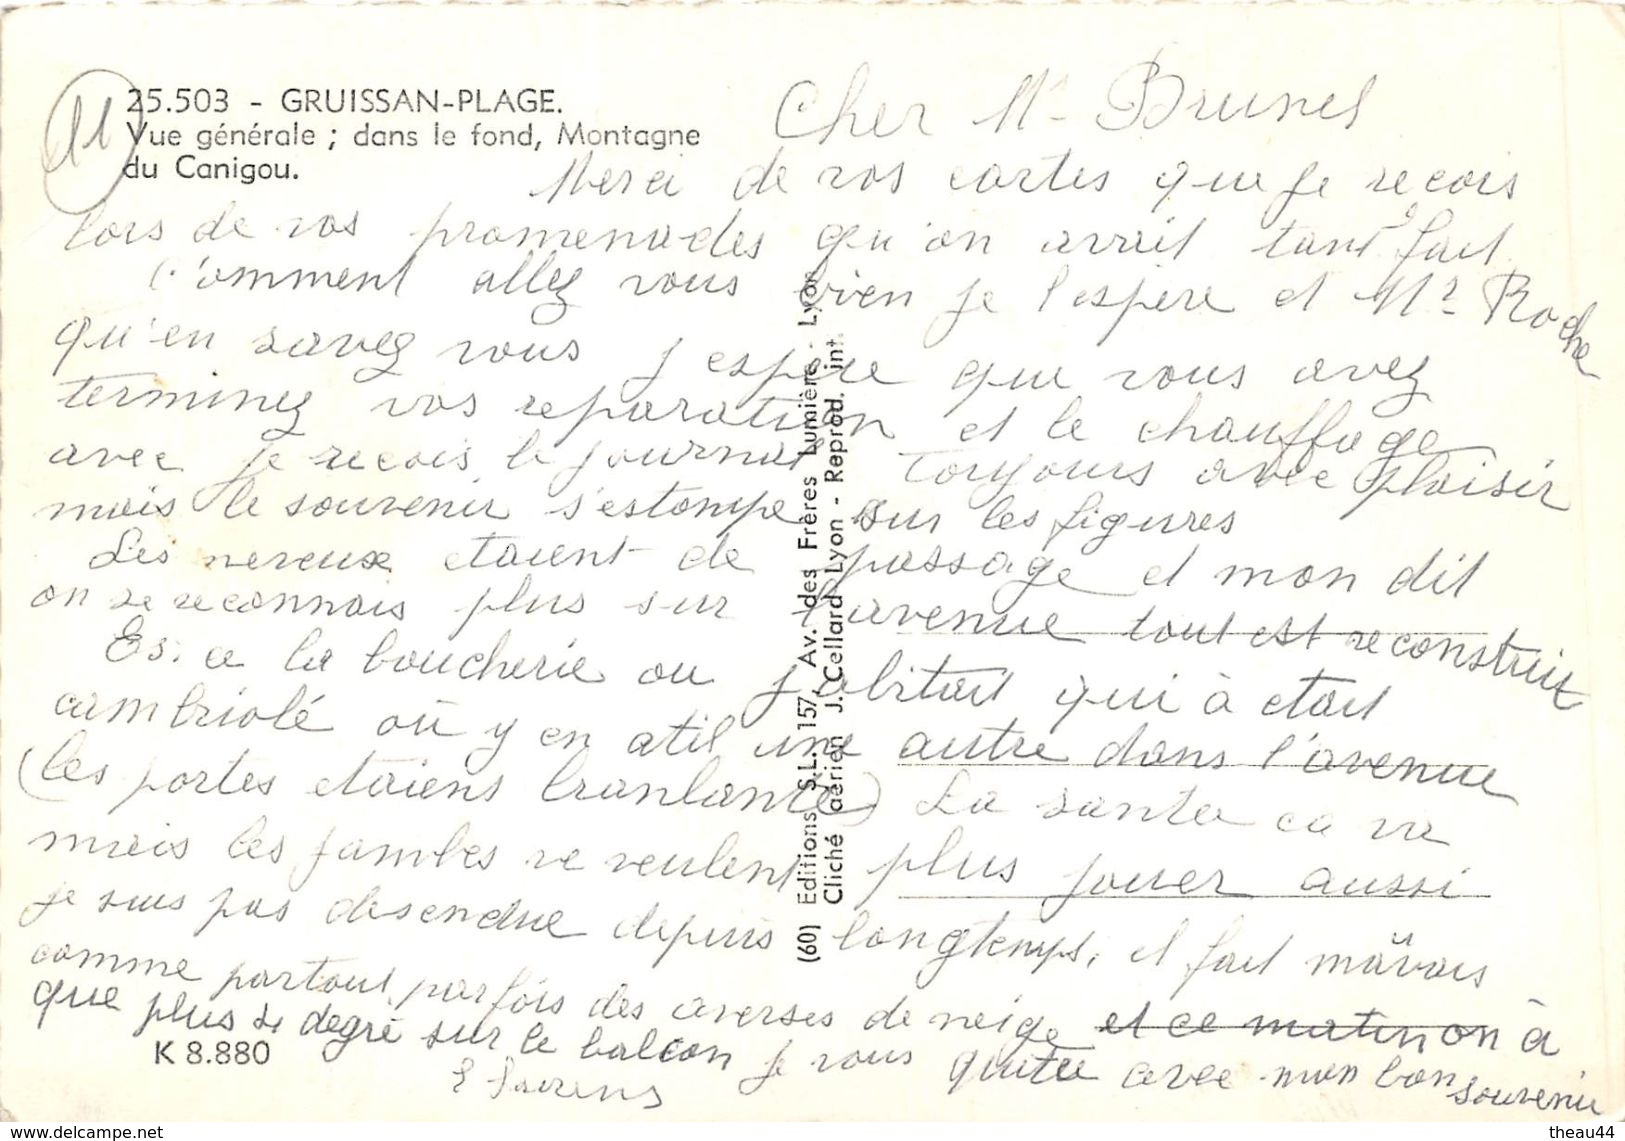 11
25.503 - GRUISSAN-PLAGE.
Vue générale ; dans le fond, Montagne
du Canigou.
Cher Mr Brunel
Merci de vos cartes que je recois
lors de vos promenades qu'on avait tant fait
Comment allez vous bien je l'espere et Mr Roche
qu'en savez vous j espere que vous avez
terminez vos reparation et le chauffage
avec je recois le journal toujours avec plaisir
mais le souvenir s'estompe sur les figures
Les neveux etaient de passage et mon dit
on se reconnais plus sur l'avenue tout est reconstruit
Es. ce la boucherie ou j'abitait qui à etait
cambriolé où y en atil une autre dans l'avenue
(les portes etaiens branlante) La santee ca va
mais les jambes ne veulent plus jouer aussi
je suis pas desendue depuis longtemps, il fait mauvais
comme partout parfois des averses de neige et ce matin on à
que plus de degré sur le balcon je vous quitte avec mon bon souvenir
(60) Editions S.L. 157, Av. des Frères Lumière - Lyon
Cliché aérien J. Cellard Lyon - Reprod. int.
K 8.880
delcampe.net
theau44